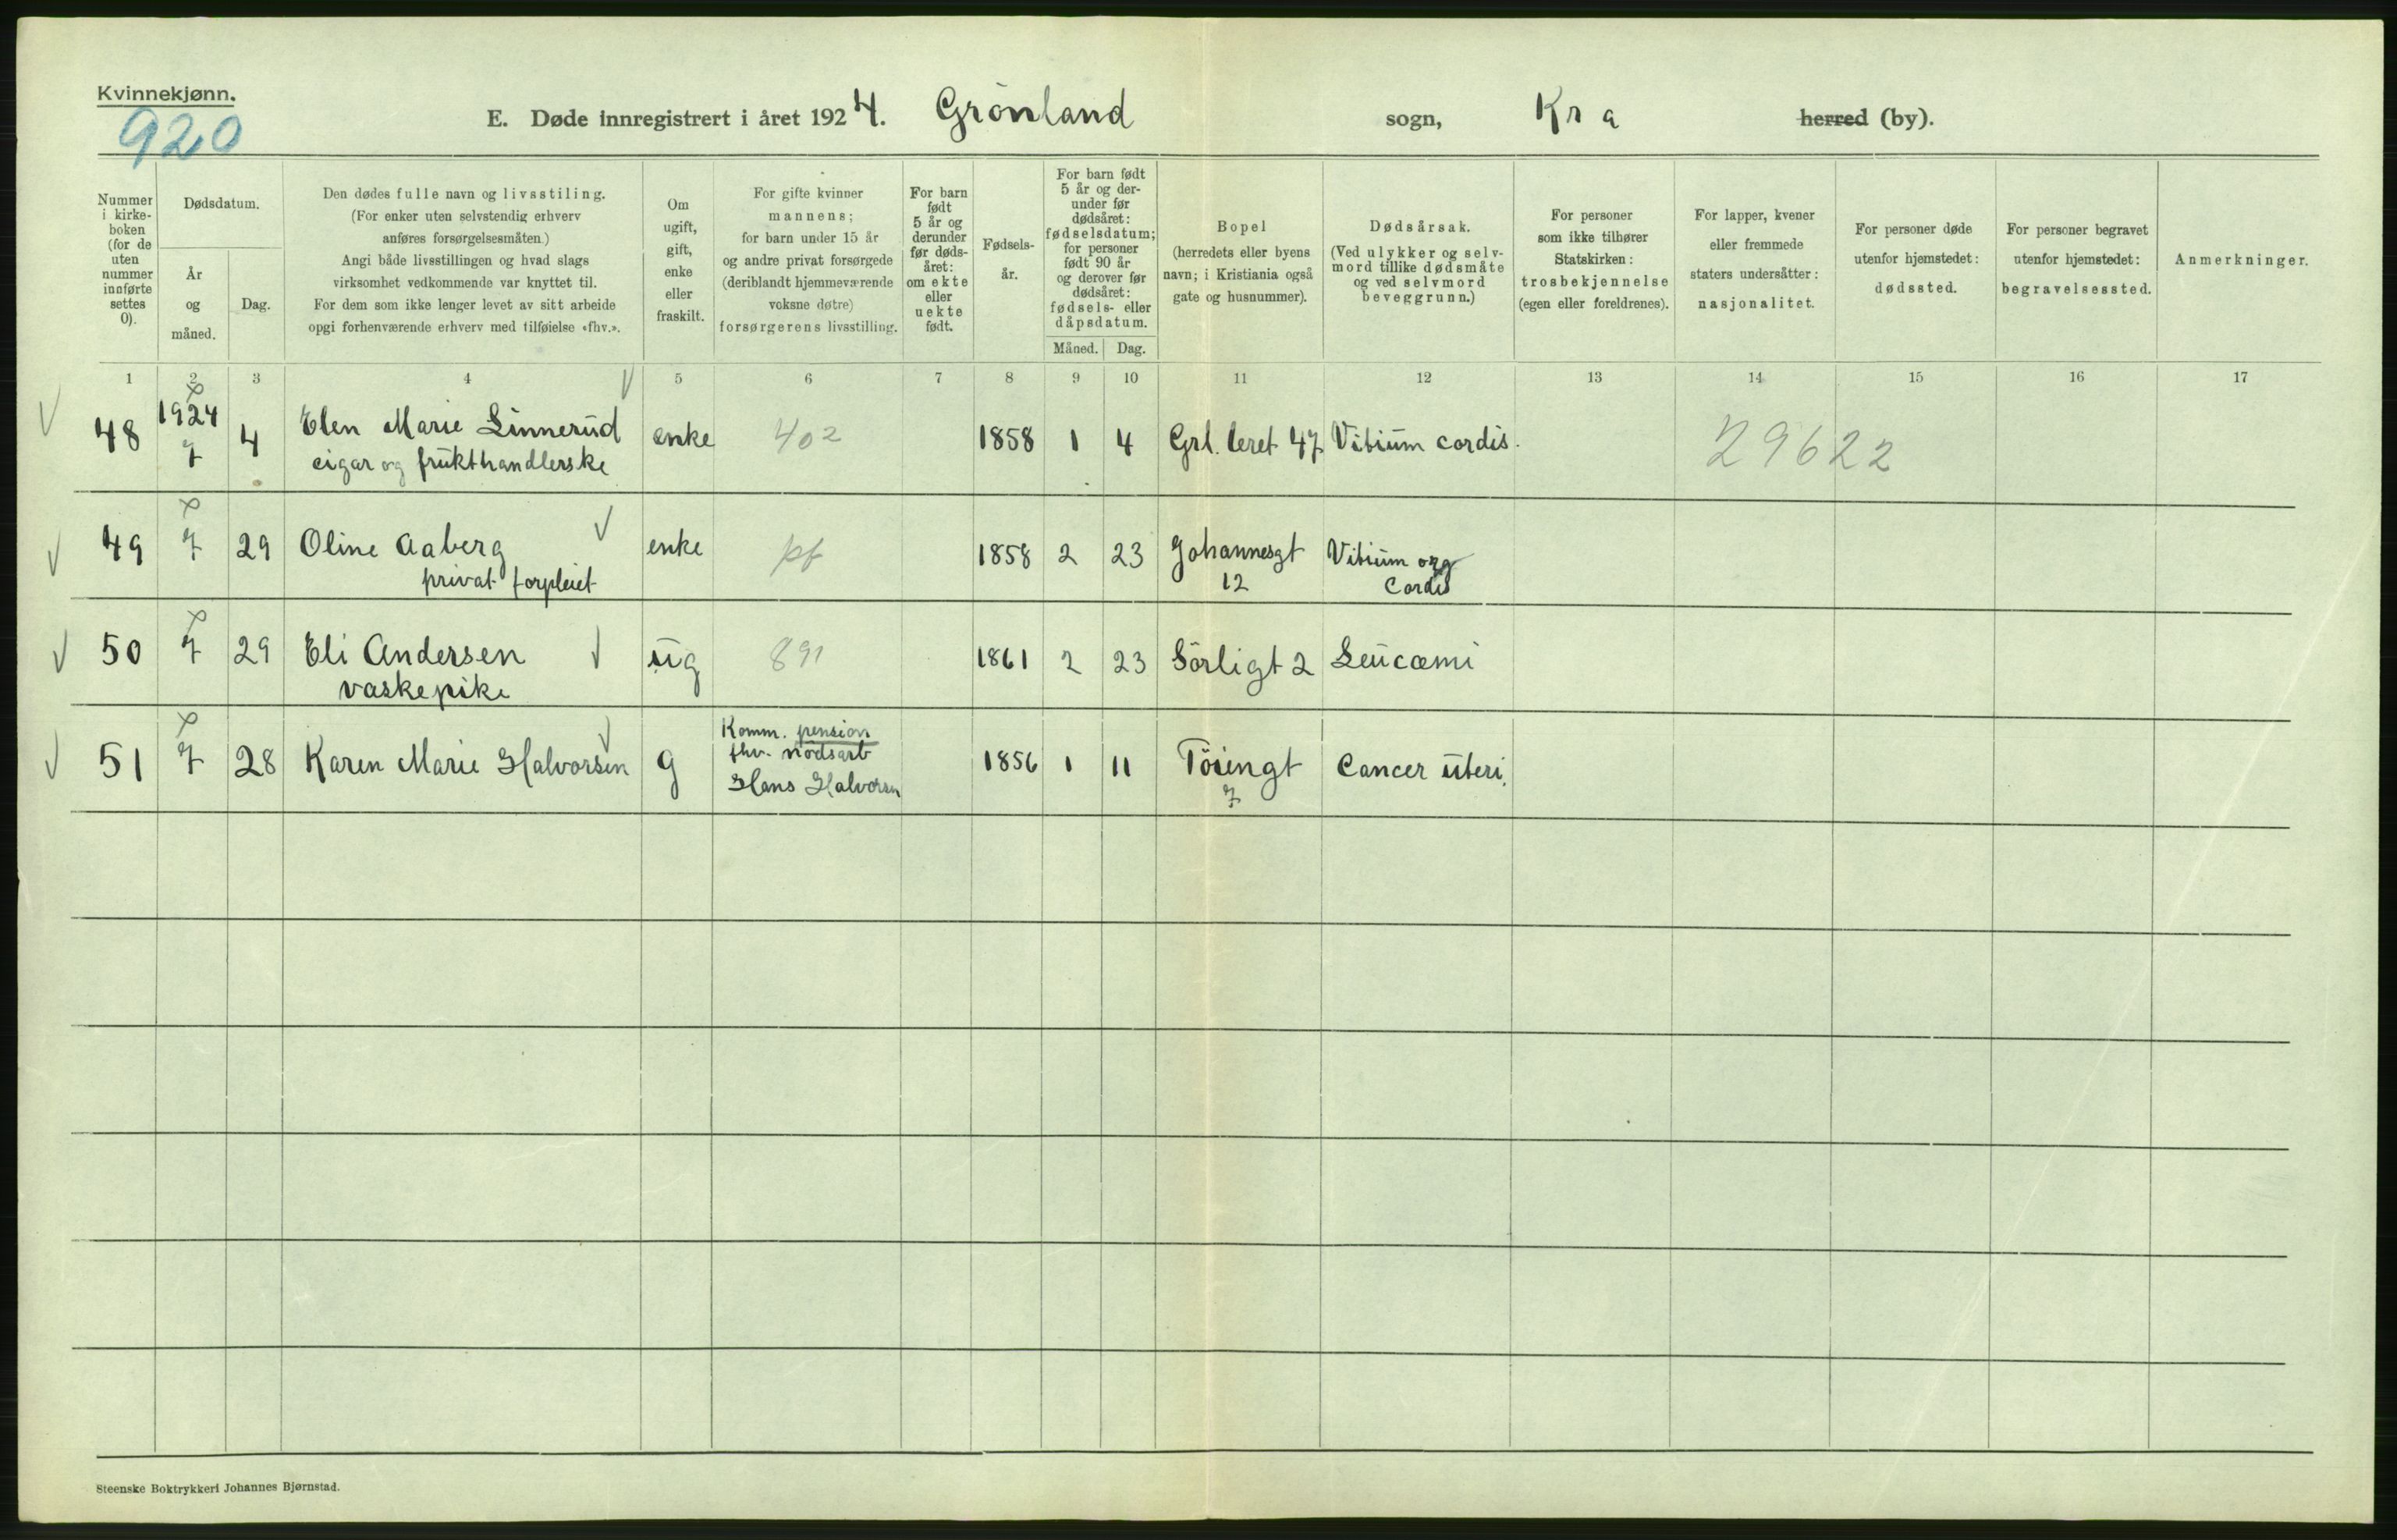 Kvinnekjønn.
920
E. Døde innregistrert i året 1924. Grönland sogn, Kra herred (by).
Nummer i kirke- boken (for de uten nummer innførte settes 0).
Dødsdatum.
År og måned.
Dag.
Den dødes fulle navn og livsstiling.
(For enker uten selvstendig erhverv
anføres forsørgelsesmåten.)
Angi både livsstillingen og hvad slags
virksomhet vedkommende var knyttet til.
For dem som ikke lenger levet av sitt arbeide
opgi forhenværende erhverv med tilføielse «fhv.».
Om ugift, gift, enke eller fraskilt.
For gifte kvinner
mannens;
for barn under 15 år
og andre privat forsørgede
(deriblandt hjemmeværende
voksne døtre)
forsørgerens livsstilling.
For barn født 5 år og derunder før døds- året: om ekte eller uekte født.
Fødsels- år.
For barn født
5 år og der-
under før
dødsåret:
fødselsdatum;
for personer
født 90 år
og derover før
dødsåret:
fødsels- eller
dåpsdatum.
Måned. Dag.
Bopel
(herredets eller byens
navn; i Kristiania også
gate og husnummer).
Dødsårsak.
(Ved ulykker og selv-
mord tillike dødsmåte
og ved selvmord
beveggrunn.)
For personer
som ikke tilhører
Statskirken:
trosbekjennelse
(egen eller foreldrenes).
For lapper, kvener
eller fremmede
staters undersåtter:
nasjonalitet.
For personer døde
utenfor hjemstedet:
dødssted.
For personer begravet
utenfor hjemstedet:
begravelsessted.
Anmerkninger.
1 2 3 4 5 6 7 8 9 10 11 12 13 14 15 16 17
48 1924 7 4 Elen Marie Linnerud enke 402 1858 1 4 Grl. leret 47 Vitium cordis. 29622
cigar og frukthandlerske
49 7 29 Oline Aaberg enke pf 1858 2 23 Johannesgt Vitium org
privat forpleiet 12 Cordis
50 7 29 Eli Andersen ug 891 1861 2 23 Sörligt 2 Leucæmi
vaskepike
51 7 28 Karen Marie Halvorsen g Komm. pension 1856 1 11 Töiengt Cancer uteri.
fhv. nödsarb 7
Hans Halvorsen
Steenske Boktrykkeri Johannes Bjørnstad.